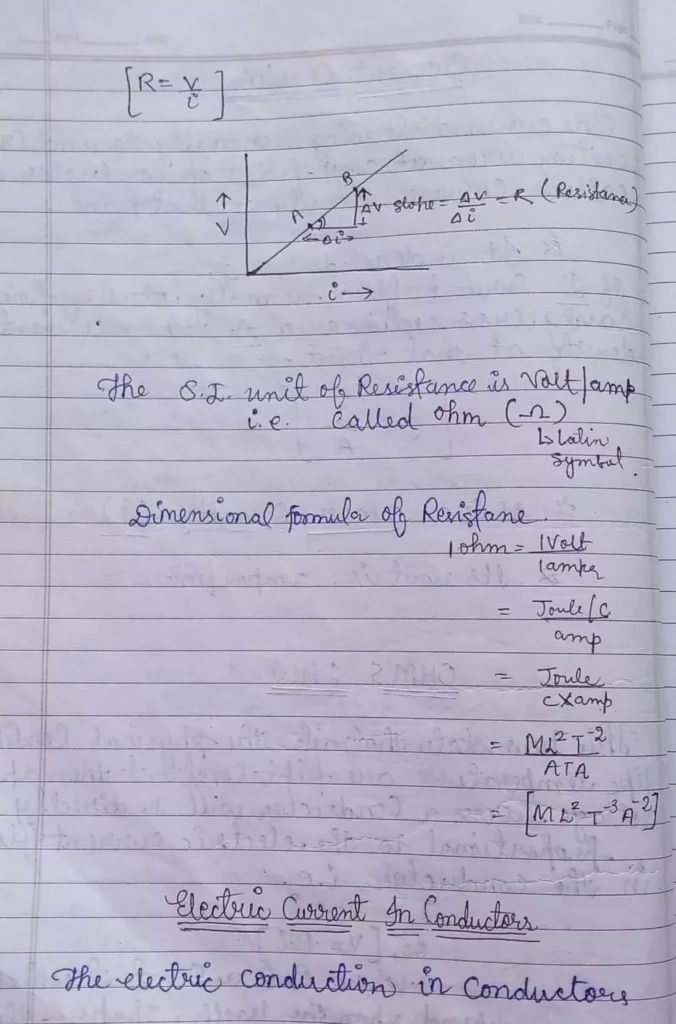 [R = V/i]
B
↑ V
A
ΔV
slope = ΔV/Δi = R (Resistance)
Δi
i →
The S.I. unit of Resistance is Volt/amp
i.e. called ohm (Ω)
↳ Latin
symbol.
Dimensional formula of Resistane.
1 ohm = 1Volt/1amper
= Joule/C/amp
= Joule/C×amp
= ML²T⁻²/ATA
= [ML²T⁻³A⁻²]
Electric Current In Conductors
The electric conduction in conductors